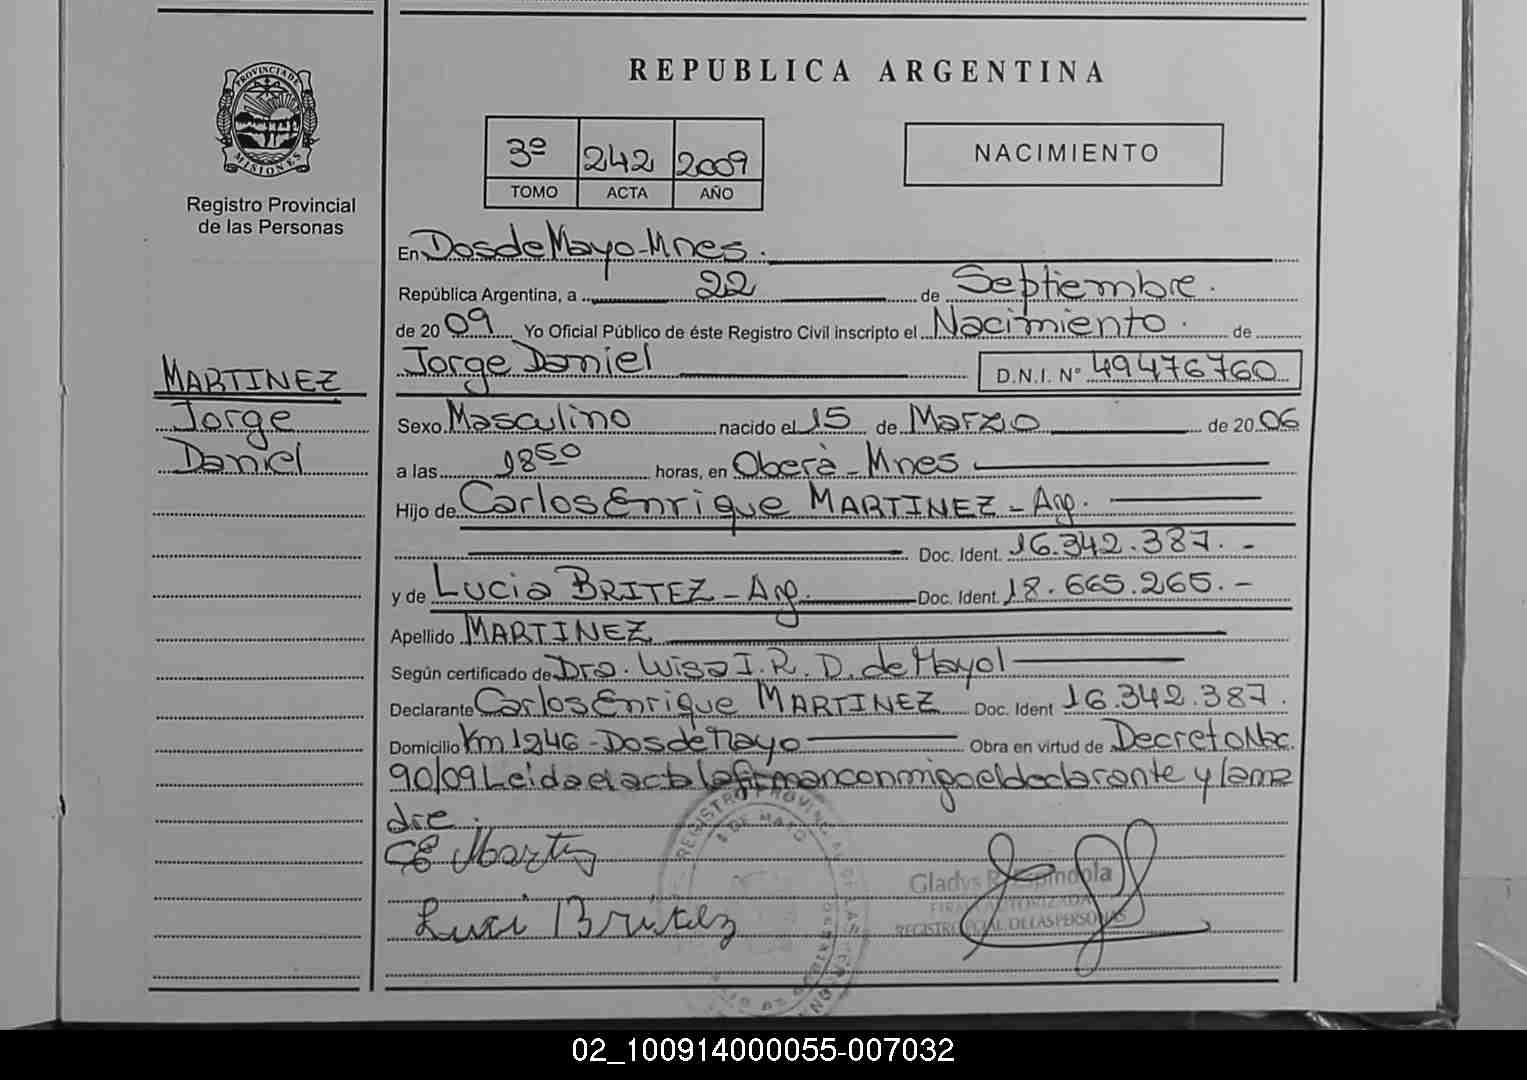 PROVINCIA DE
MISIONES
Registro Provincial
de las Personas
MARTINEZ
Jorge
Daniel
REPUBLICA ARGENTINA
3º 242 2009
TOMO ACTA AÑO
NACIMIENTO
En Dos de Mayo - Mnes.
República Argentina, a 22 de Septiembre.
de 20 09 Yo Oficial Público de éste Registro Civil inscripto el Nacimiento. de
Jorge Daniel D.N.I. Nº 49476760
Sexo Masculino nacido el 15 de Marzo de 20 06
a las 18 50 horas, en Oberà - Mnes
Hijo de Carlos Enrique MARTINEZ - Arg.
Doc. Ident. 16.342.387. -
y de Lucia BRITEZ - Arg. Doc. Ident. 18.665.265. -
Apellido MARTINEZ
Según certificado de Dra. Luisa I. R. D. de Mayol
Declarante Carlos Enrique MARTINEZ Doc. Ident 16.342.387.
Domicilio Km 1246 - Dos de Mayo Obra en virtud de Decreto Nac.
90/09 Leida el acta la firman conmigo el declarante y la ma
dre.
CE Martinez
Luci Britez
REGISTRO PROVINCIAL DE LAS
2 DE MAYO
Gladys R. Espindola
FIRMA AUTORIZADA
REGISTRO PCIAL. DE LAS PERSONAS
02_100914000055-007032